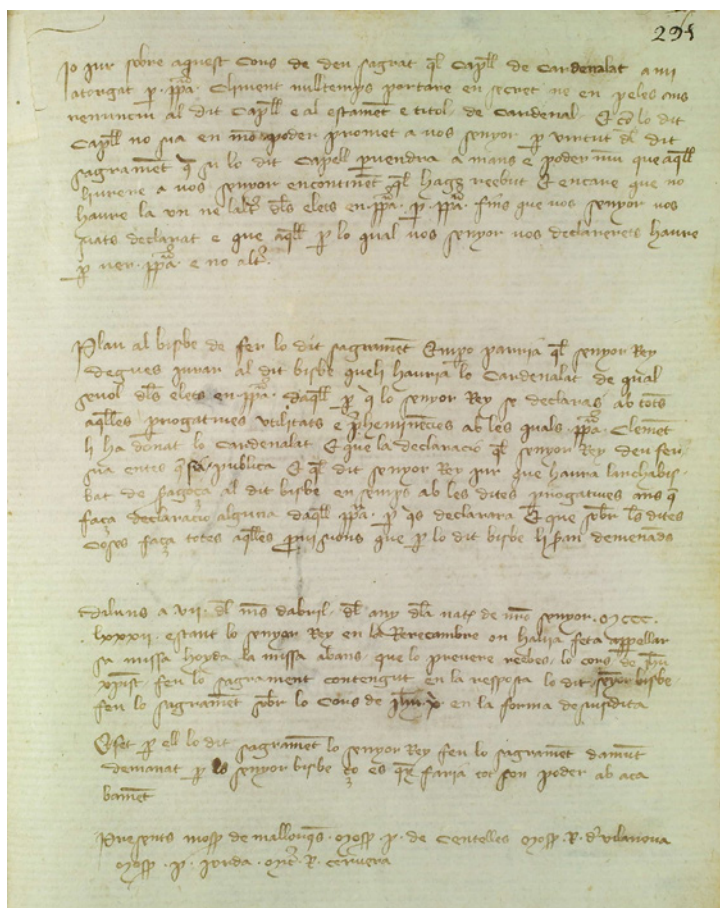 291
Io jur sobre aquest Cors de deu sagrat ql Capell de Cardenalat a mi
atorgat p. ppa. Climent nulltemps portare en secret ne en peles ans
renunciu al dit Capell e al estament e titol de Cardenal. Et com lo dit
Capell no sia en mon poder promet a vos senyor p virtut del dit
sagrament q si lo dit Capell pervendra a mans e poder meu que aqll
liurere a vos senyor encontinent ql haga reebut Et encare que no
haure la un ne laltr dls elets en ppa. p. ppa. fins que vos senyor vos
siats declarat e que aqll p lo qual vos senyor vos declarerets haure
p ver ppa. e no altr.
Plau al bisbe de fer lo dit sagrament Empo parria ql senyor Rey
degues jurar al dit bisbe queli hauria lo Cardenalat de qual
sevol dls elets en ppa. daqll p q lo senyor Rey se declaras ab tots
aqlles progatives utilitats e preheminencies ab les quals ppa. Clement
li ha donat lo Cardenalat Et que la declaracio ql senyor Rey deu fer
sia entes q sia publica Et ql dit senyor Rey jur que haura larchabis
bat de Saragoça al dit bisbe ensemps ab les dites progatives ans q
faça declaracio alguna daqll ppa. p qs declarara Et que sobr les dites
Coses faça totes aqlles provisions que p lo dit bisbe li seran demenads
Diluns a vii. dl mes dabril. dl any dla nat de nre senyor. Mccc.
lxxxii. estant lo senyor Rey en la Rerecambre on havia feta appellar
sa missa hoyda la missa abans que lo prevere reebes lo cors de Jhu
xpist feu lo sagrament contengut en la resposta lo dit senyor bisbe
feu lo sagrament sobr lo Cors de Jhu x en la forma desusdita
E fet p ell lo dit sagrament lo senyor Rey feu lo sagrament damunt
demanat p lo senyor bisbe ço es que faria tot son poder ab aca
bament
Presents mossen de mallorqs. mossen p. de Centelles mossen R. d vilanova
mossen p. jorda. R. cervera